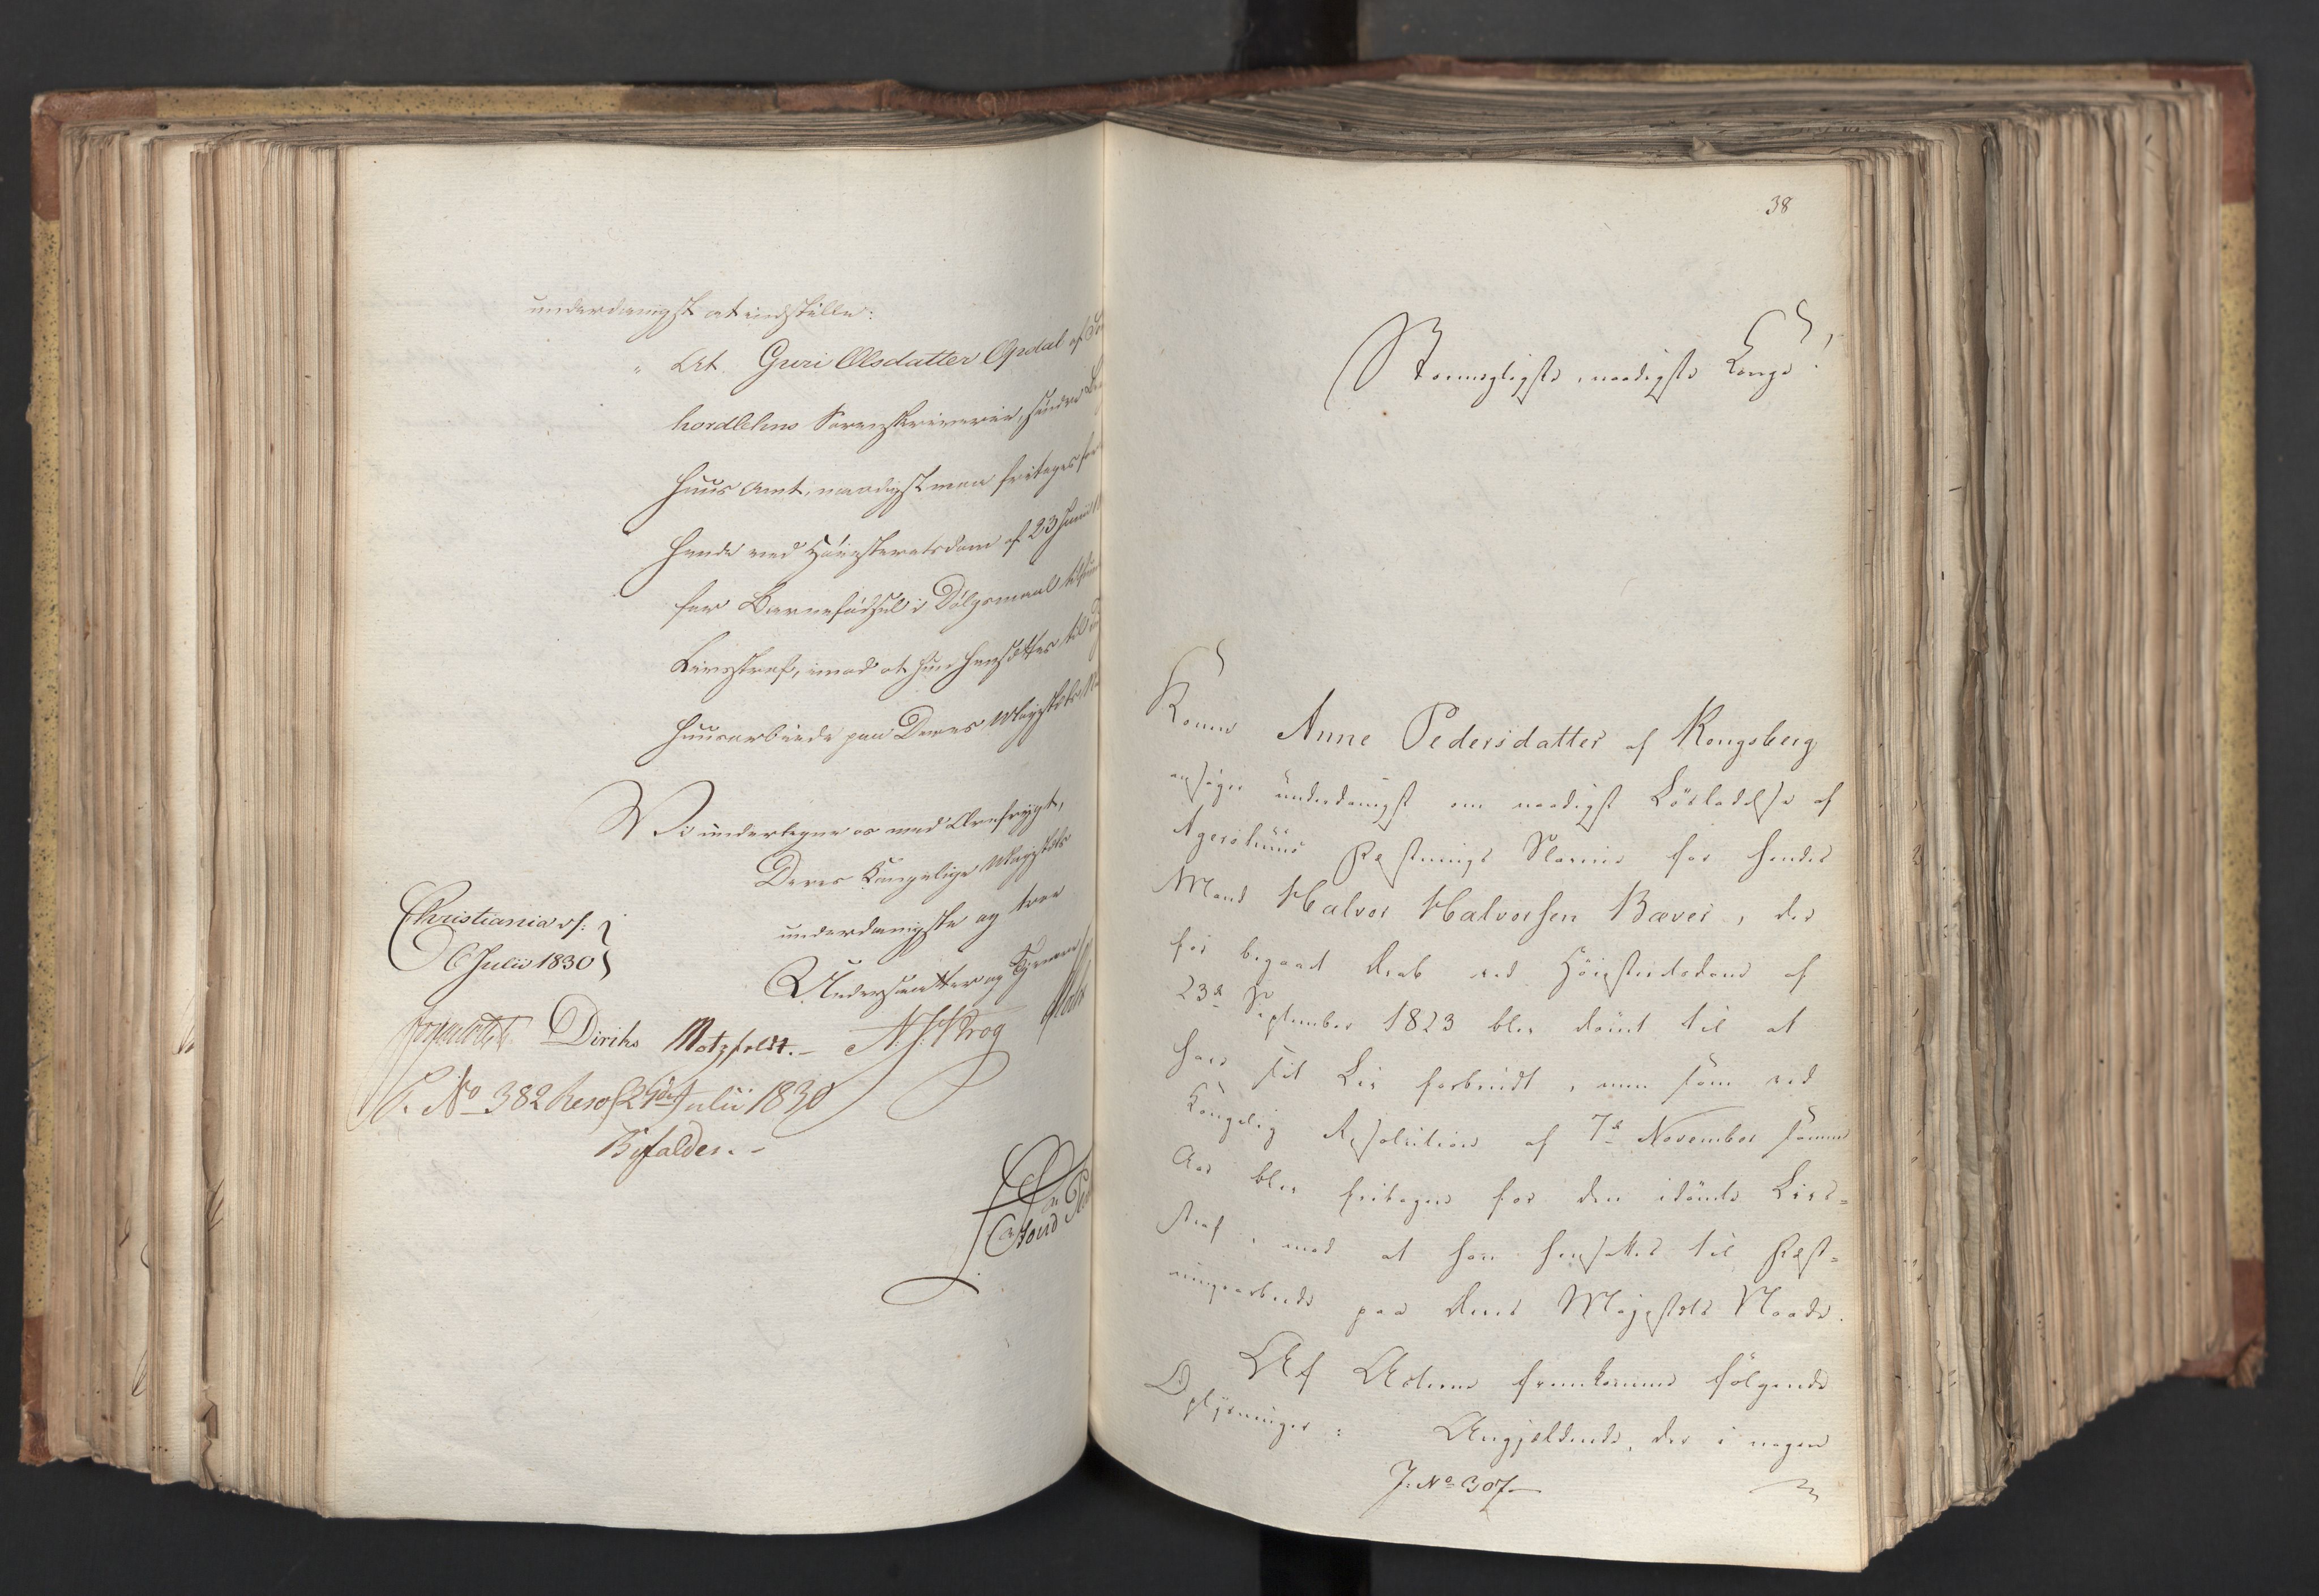 underdanigst at indstille:
„ At Guri Olsdatter Opdal af
hordlehns Sorenskriverie, søndre
huus Amt, naadigst maa fritages for
hende ved Høiesteretsdom af 23 Junii
for Barnefødsel i Dølgsmaal
Livsstraf, imod at hun hensættes til
huusarbeide paa Deres Majestæts
Vi undertegne os med Ærefrygt,
Deres Kongelige Majestæts
underdanigste og troe
Undersaatter og Tjenere
Christiania d:
6 Julii 1830
Diriks Motzfeldt.- N. J. Krog
P. No 382 Resol 29de Julii 1830
Bifaldes.-
38
Stormægtigste, naadigste Konge!
Kone Anne Pedersdatter af Kongsberg
ansøger underdanigst om naadigst Løsladelse af
Agershuus Fæstnings Slaverie for hendes
Mand Halvor Halvorsen Bæver, der
for begaaet Drab ved Høiesteretsdom af
23de September 1823 blev dømt til at
have sit Liv forbrudt, men som ved
Kongelig Resolution af 7de November samme
Aar blev fritagen for den idømte Livs=
straf, imod at han hensattes til Fæst=
ningsarbeide paa Deres Majestæts Naade.
Af Acterne fremkomme følgende
Oplysninger: Angjældende, der i nogen
J: No 307